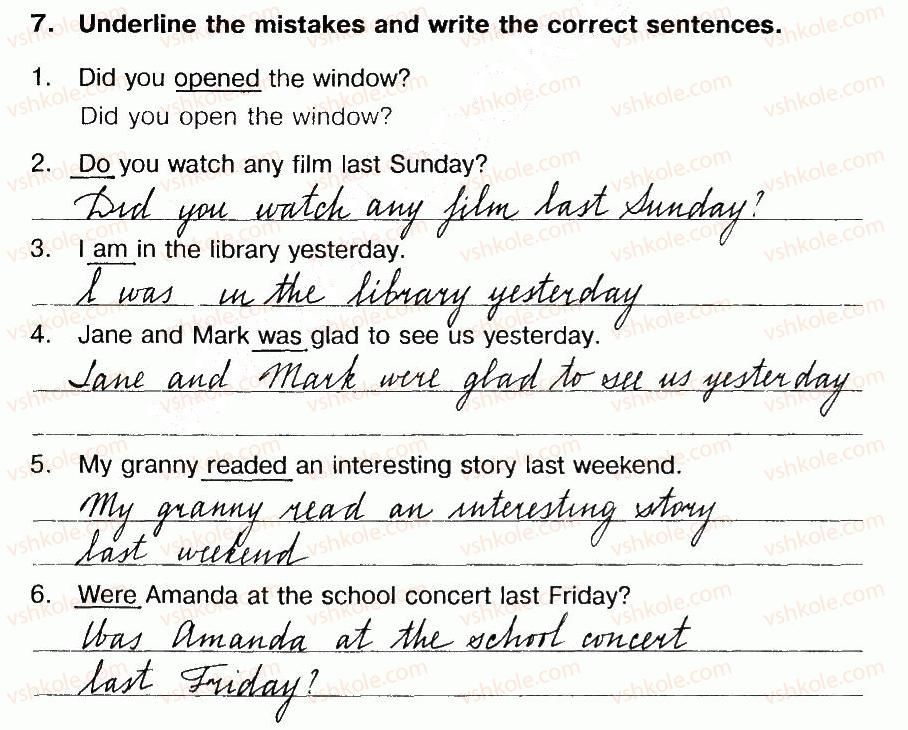 7. Underline the mistakes and write the correct sentences.
1. Did you opened the window?
Did you open the window?
2. Do you watch any film last Sunday?
Did you watch any film last Sunday?
3. I am in the library yesterday.
I was in the library yesterday
4. Jane and Mark was glad to see us yesterday.
Jane and Mark were glad to see us yesterday
5. My granny readed an interesting story last weekend.
My granny read an interesting story
last weekend
6. Were Amanda at the school concert last Friday?
Was Amanda at the school concert
last Friday?
vshkole.com